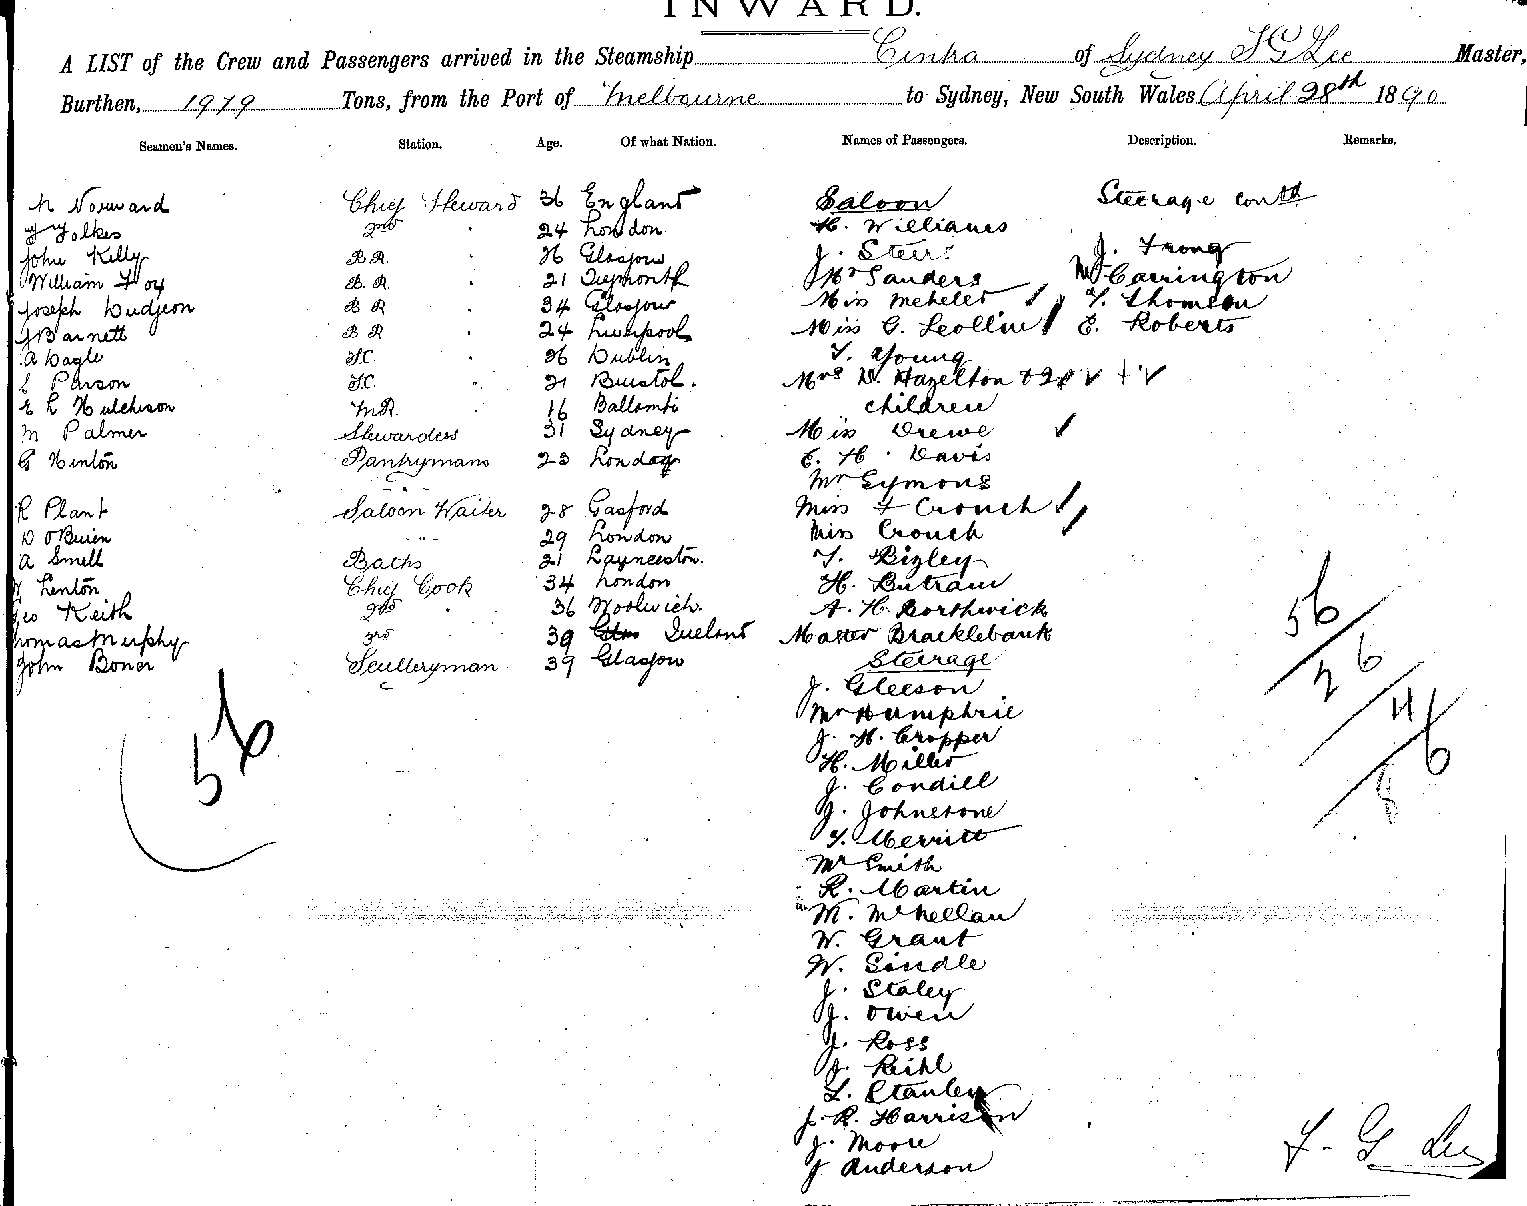 INWARD.
A LIST of the Crew and Passengers arrived in the Steamship Cintra of Sydney T G Lee Master,
Burthen, 1979 Tons, from the Port of Melbourne to Sydney, New South Wales April 28th 1890
Seamen's Names. Station. Age. Of what Nation. Names of Passengers. Description. Remarks.
Norward Chief Steward 36 England Saloon Steerage contd
2nd " 24 London H. Williams
John Kelly B.R. " 26 Glasgow J. J. Frong
William Foy B.R. " 21 Mr Sanders Mr Carrington
Joseph Dudgeon B R 34 Glasgow Miss T. Thomson
Barnett B R " 24 Liverpool Miss G. E. Roberts
A Dagle F.C. " 26 Dublin T. Young
Parson F.C. " 21 Bristol. Mrs D. Hazelton + 2
E L Hutchison M.R. " 16 children
M Palmer Stewardess 31 Sydney Miss Drewe
G Hinton Pantrymans 23 London E. H. Davis
Mr Symons
R Plant Saloon Waiter 28 Miss F Crouch
D O'Brien " 29 London Miss Crouch
A Smell Baths 21 Launceston. T. Bigley
Lenton Chief Cook 34 London H. Butram
Geo Keith 2nd " 36 Woolwich. A. H. Borthwick
Thomas Murphy 3rd " 39 Ireland Master Bracklebank
John Boner Sculleryman 39 Glasgow Steerage
J. Gleeson
Mr Humphrie
56
J. H. Cropper
H. Miller
J. Condill
J. Johnstone
T. Merritt
Mr Smith
R. Martin
M. McKellan
W. Grant
W. Sindle
J. Staley
J. Owen
J. Ross
J. Reihl
L. Stanley
J. R. Harrison
J. Moore
J Anderson
56
26
46
8
T. G Lee